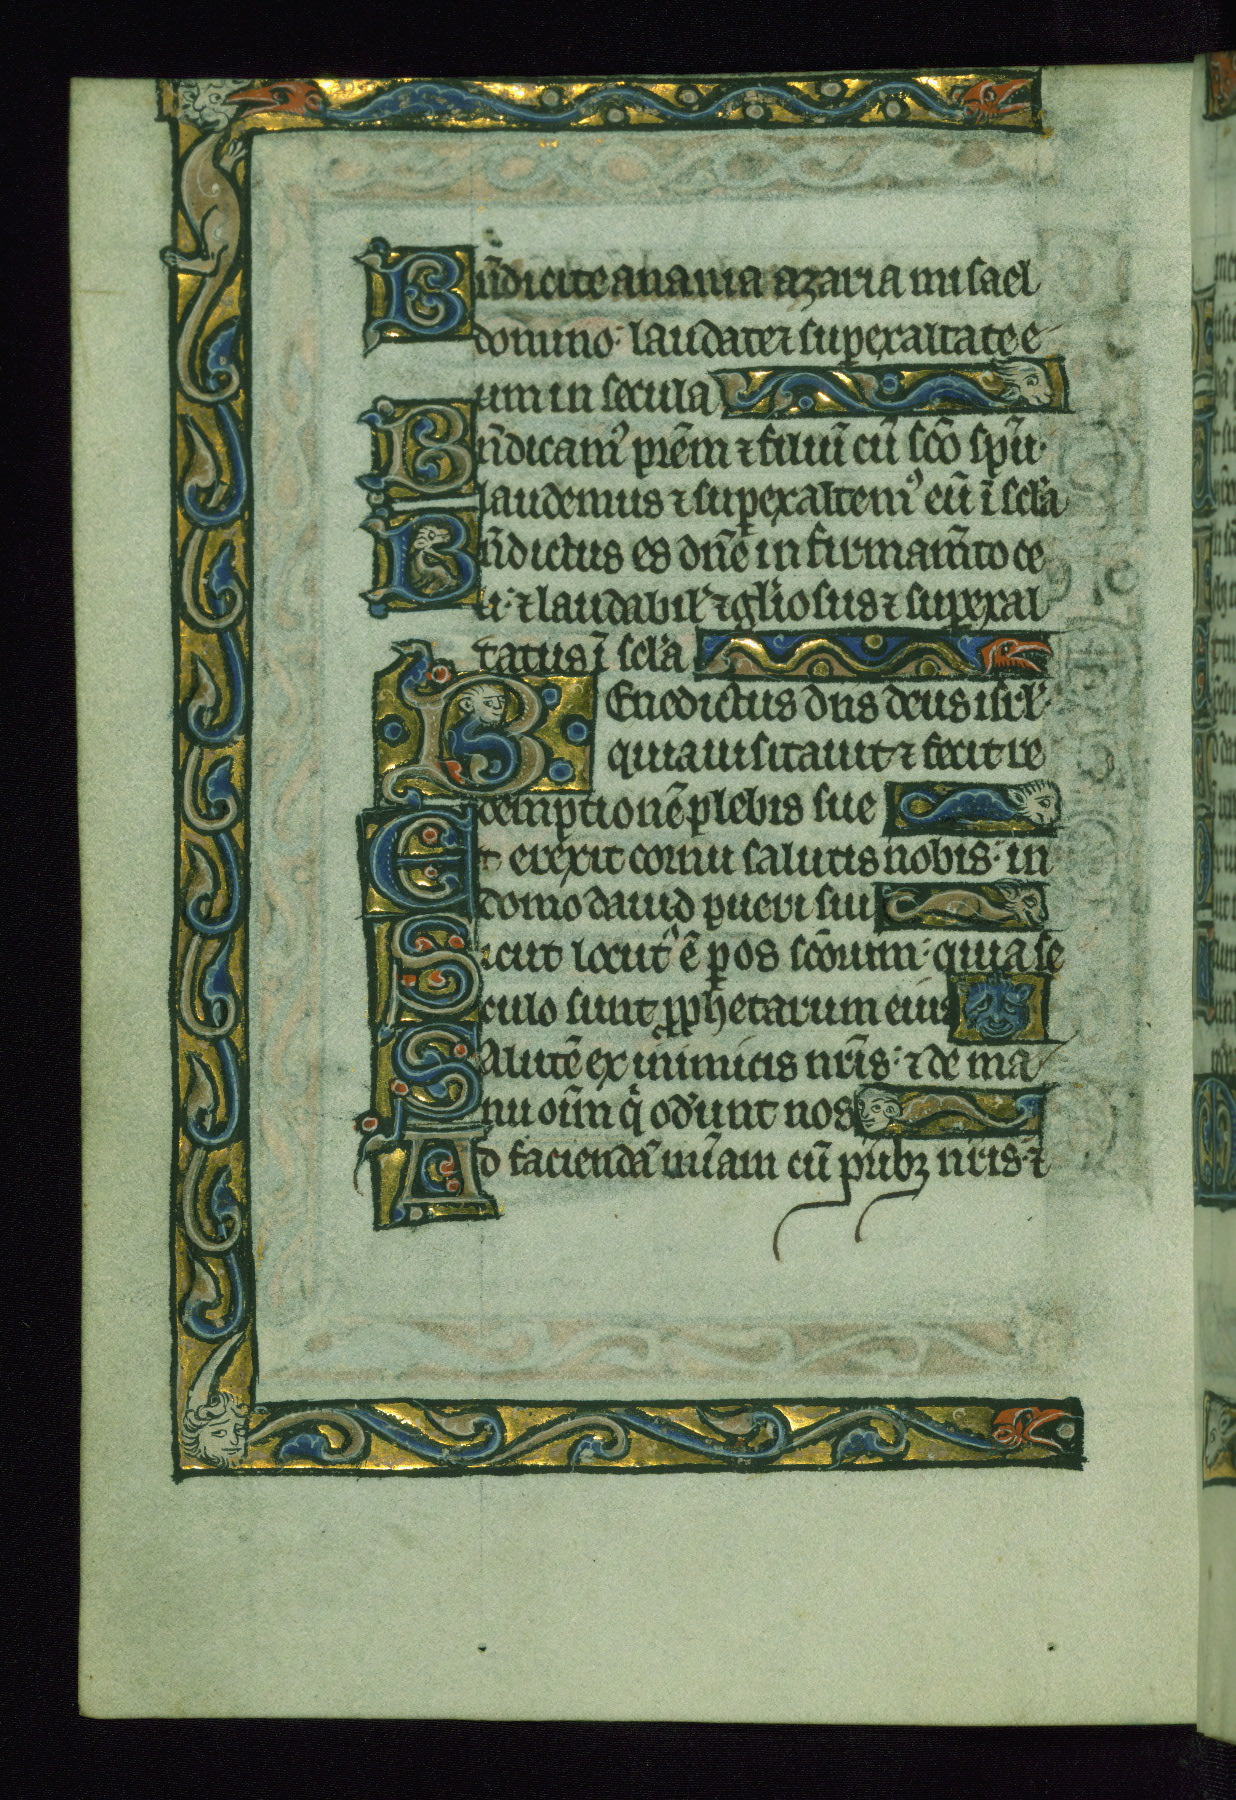 Bn̄dicite anania azaria misael
domino· laudate ⁊ superexaltate e
um in secula
Bn̄dicam᷒ pr̄em ⁊ filiū cū sc̄o sp̄u·
laudemus ⁊ superexaltem᷒ eū ī sc̄la
Bn̄dictus es dn̄e in firmam̄to ce
li· ⁊ laudabil' ⁊ gl'iosus ⁊ superexal
tatus ī sc̄la
BEnedictus dn̄s deus isrl'·
quia uisitauit ⁊ fecit re
demptionē plebis sue
Et erexit cornu salutis nobis· in
domo dauid pueri sui
Sicut locut᷒ ē p os sc̄orum· quia se
culo sunt prophetarum eius
Salutē ex inimicis nr̄is· ⁊ de ma
nu oīm q̄ oderunt nos
Ad faciendā mīam cū pr̄ibꝫ nr̄is· ⁊